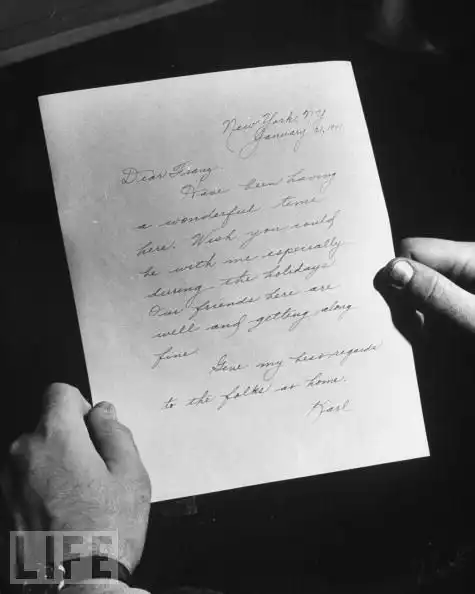 New York, NY
January 21, 1941
Dear Franz
Have been having
a wonderful time
here. Wish you could
be with me especially
during the holidays
Our friends here are
well and getting along
fine
Give my best regards
to the folks at home.
Karl
LIFE